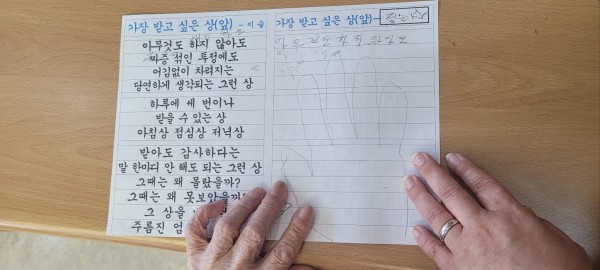 가장 받고 싶은 상(앞) - 이슬
아무것도 하지 않아도
짜증 섞인 투정에도
어김없이 차려지는
당연하게 생각되는 그런 상
하루에 세 번이나
받을 수 있는 상
아침상 점심상 저녁상
받아도 감사하다는
말 한마디 안 해도 되는 그런 상
그때는 왜 몰랐을까?
그때는 왜 못 보았을까?
그 상을
주름진 엄
가장 받고 싶은 상(앞) -